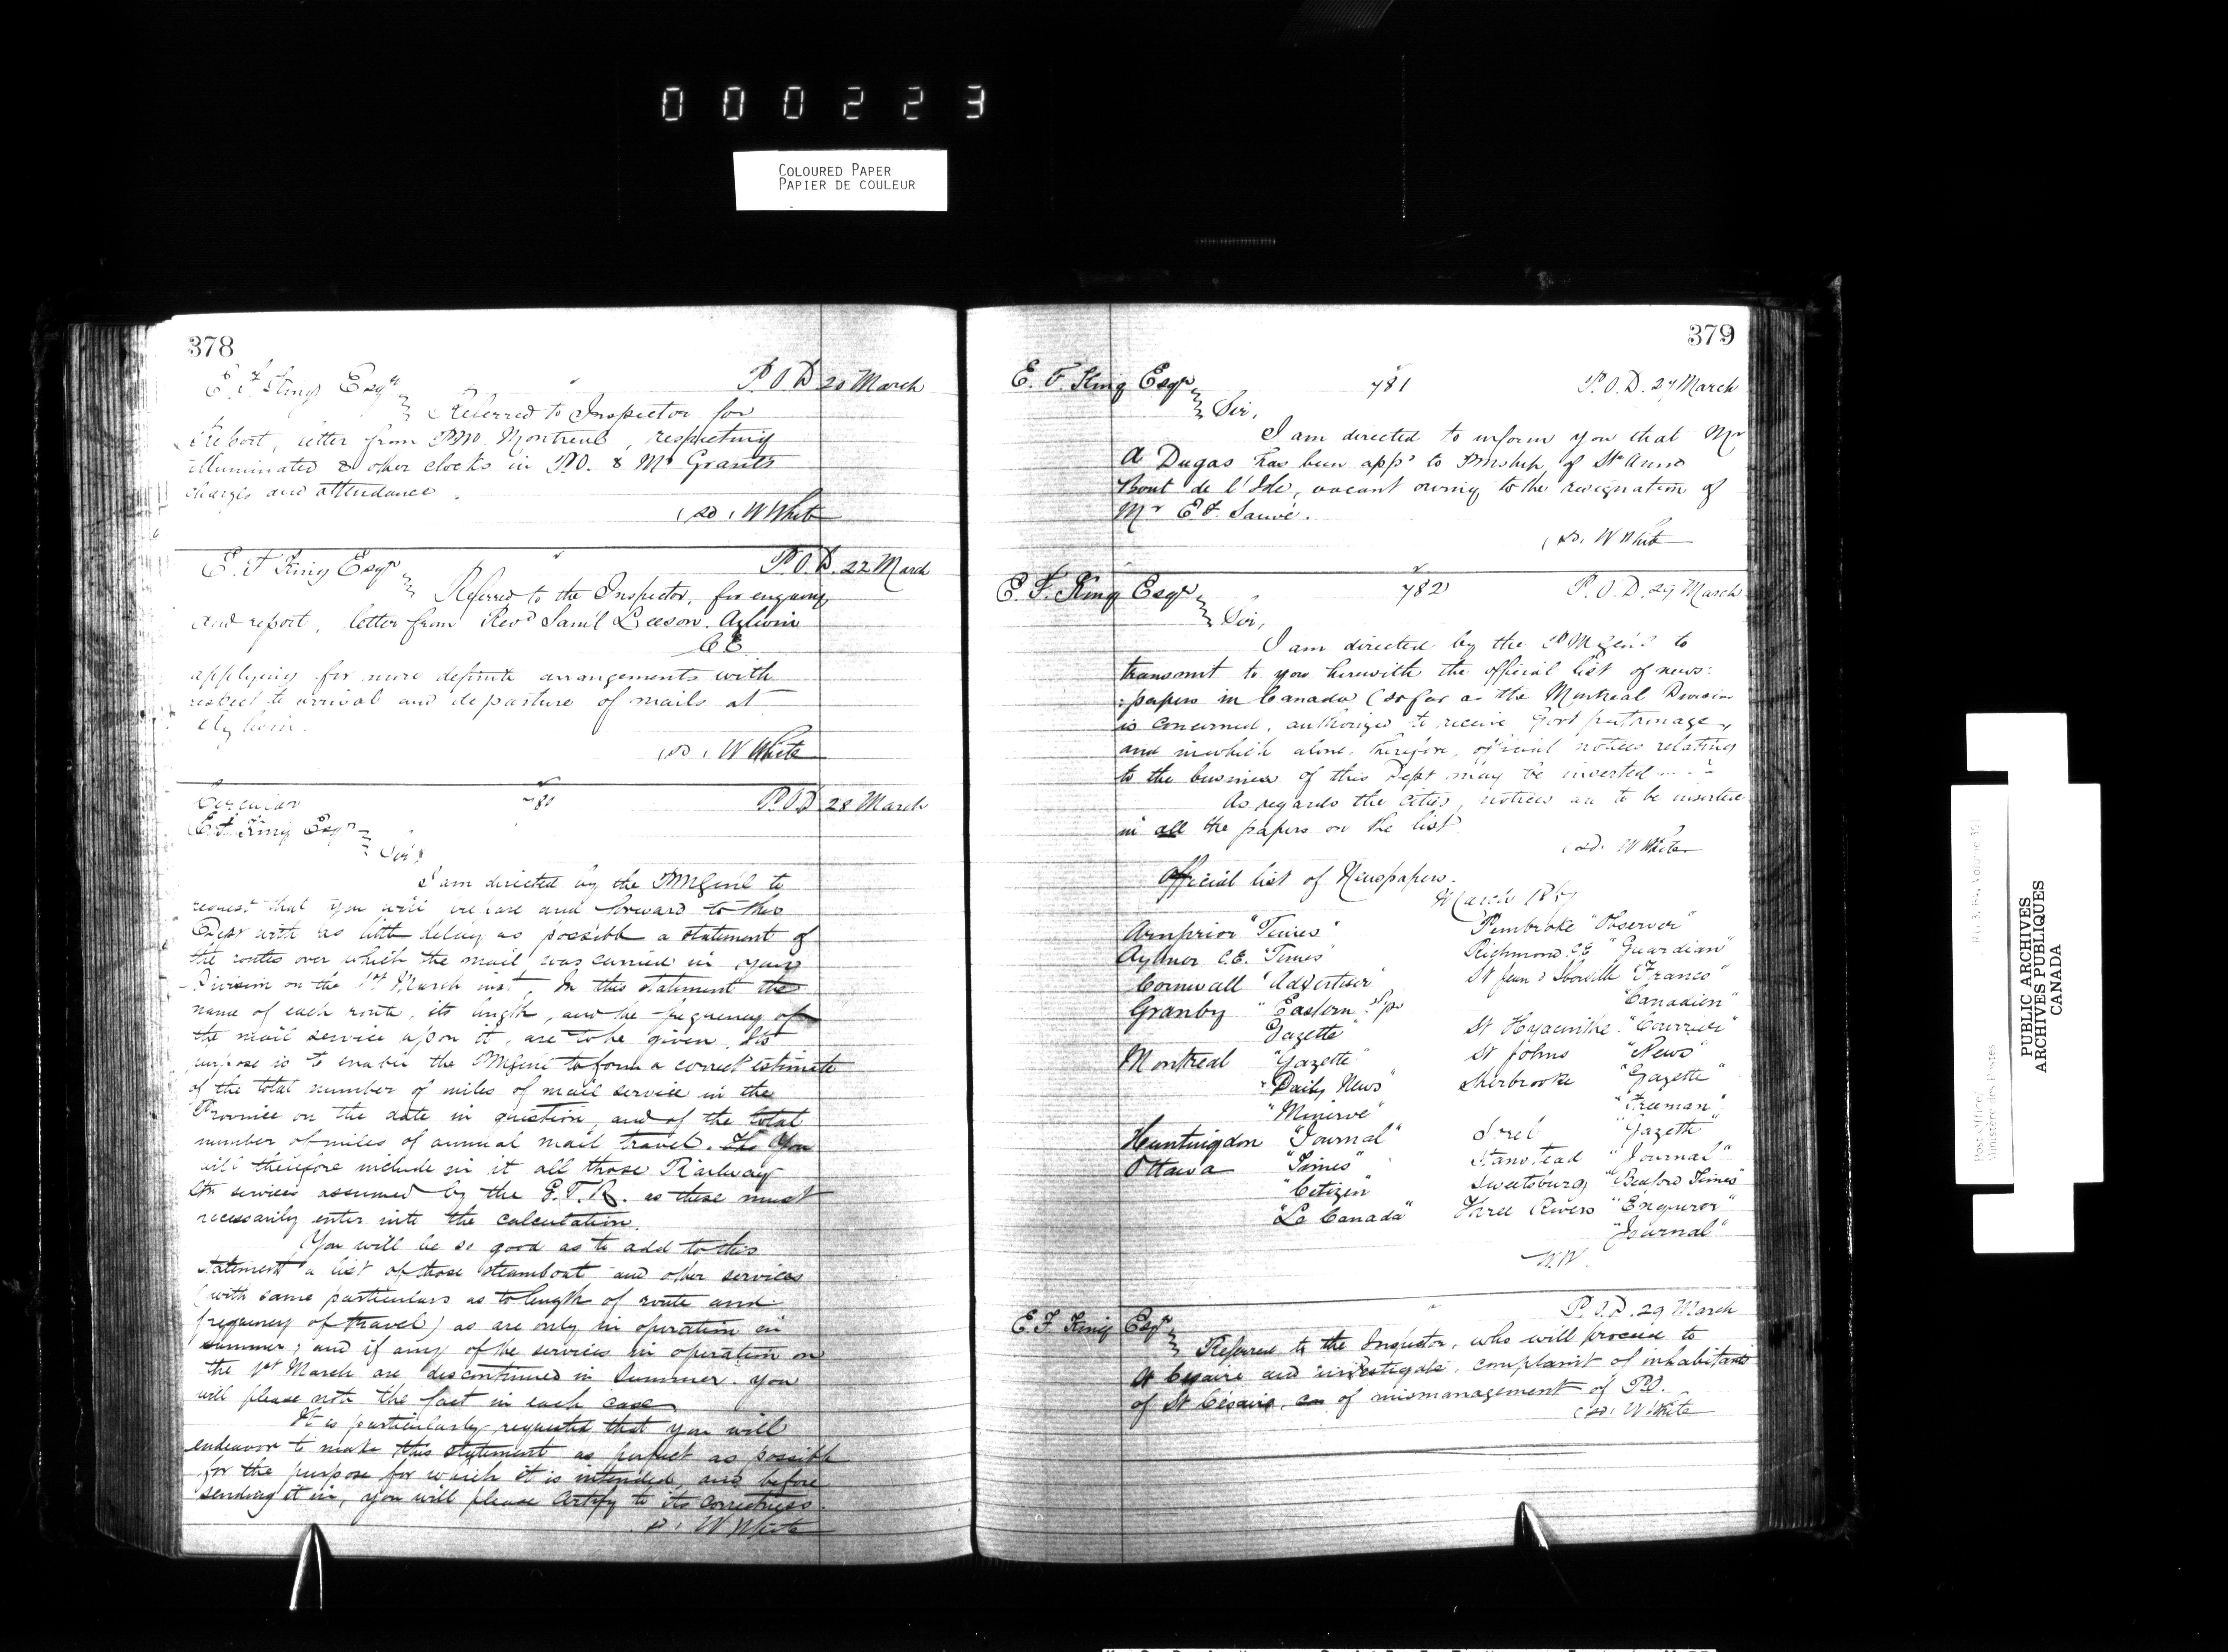 000223
COLOURED PAPER
PAPIER DE COULEUR
378
E. F. King Esqr P.O.D 20 March
Referred to Inspector for
Report, letter from PM Montreal, respecting
illuminated & other clocks in P.O. & Mr Grant's
charges and attendance.
(sd) W White
E. F King Esqr P.O.D. 22 March
Referred to the Inspector, for enquiry
and report, letter from Revd Saml Leeson. Aylwin
C E
applying for more definite arrangements with
respect to arrival and departure of mails at
Aylwin.
(sd) W White
Circular 780 P.O.D 28 March
E. F. King Esqr
Sir,
I am directed by the PMGenl to
request that you will prepare and forward to this
Dept with as little delay as possible a statement of
the routes over which the mail was carried in your
Division on the 1st March inst. In this statement the
name of each route, its length, and the frequency of
the mail service upon it, are to be given. Its
purpose is to enable the PMGenl to form a correct estimate
of the total number of miles of mail service in the
Province on the date in question, and of the total
number of miles of annual mail travel. The You
will therefore include in it all those Railway
services assumed by the G.T.R. as these must
necessarily enter into the calculation.
You will be so good as to add to this
statement a list of those steamboat and other services
(with same particulars as to length of route and
frequency of travel) as are only in operation in
summer; and if any of the services in operation on
the 1st March are discontinued in Summer. you
will please note the fact in each case
It is particularly requested that you will
endeavor to make this statement as perfect as possible
for the purpose for which it is intended and before
sending it in, you will please certify to its correctness.
sd. W White
379
E. F. King Esqr 781 P.O.D. 27 March
Sir,
I am directed to inform you that Mr
A Dugas has been appd to Pmship of Ste Anne
Bout de l'Isle, vacant owing to the resignation of
Mr E F. Sauvé.
(sd. W White
E. F. King Esqr 782 P.O.D. 29 March
Sir,
I am directed by the PMGenl to
transmit to you herewith the official list of news:
:papers in Canada (so far as the Montreal Division
is concerned, authorized to receive Govt patronage,
and in which alone, therefore, official notices relating
to the business of this Dept may be inserted
As regards the Cities, notices are to be inserted
in all the papers on the list.
(sd. W White
Official list of Newspapers.
March 1867
Arnprior "Times" Pembroke "Observer"
Aylmer C.E. "Times" Richmond C.E "Guardian"
Cornwall "Advertiser" St Jean d'Iberville "Franco"
"Canadien"
Granby "Eastern Tp
Gazette" St Hyacinthe "Courrier"
Montreal "Gazette" St Johns "News"
"Daily News" Sherbrooke "Gazette"
"Minerve" "Freeman"
Huntingdon "Journal" Sorel "Gazette"
Ottawa "Times" Stanstead "Journal"
"Citizen" Sweetsburg "Bedford Times"
"Le Canada" Three Rivers "Enquirer"
"Journal"
WW.
P.O.D. 29 March
E. F King Esqr
Referred to the Inspector, who will proceed to
St Césaire and investigate, complaint of inhabitants
of St Césaire, as of mismanagement of P.O.
(sd. W White
PUBLIC ARCHIVES
ARCHIVES PUBLIQUES
CANADA